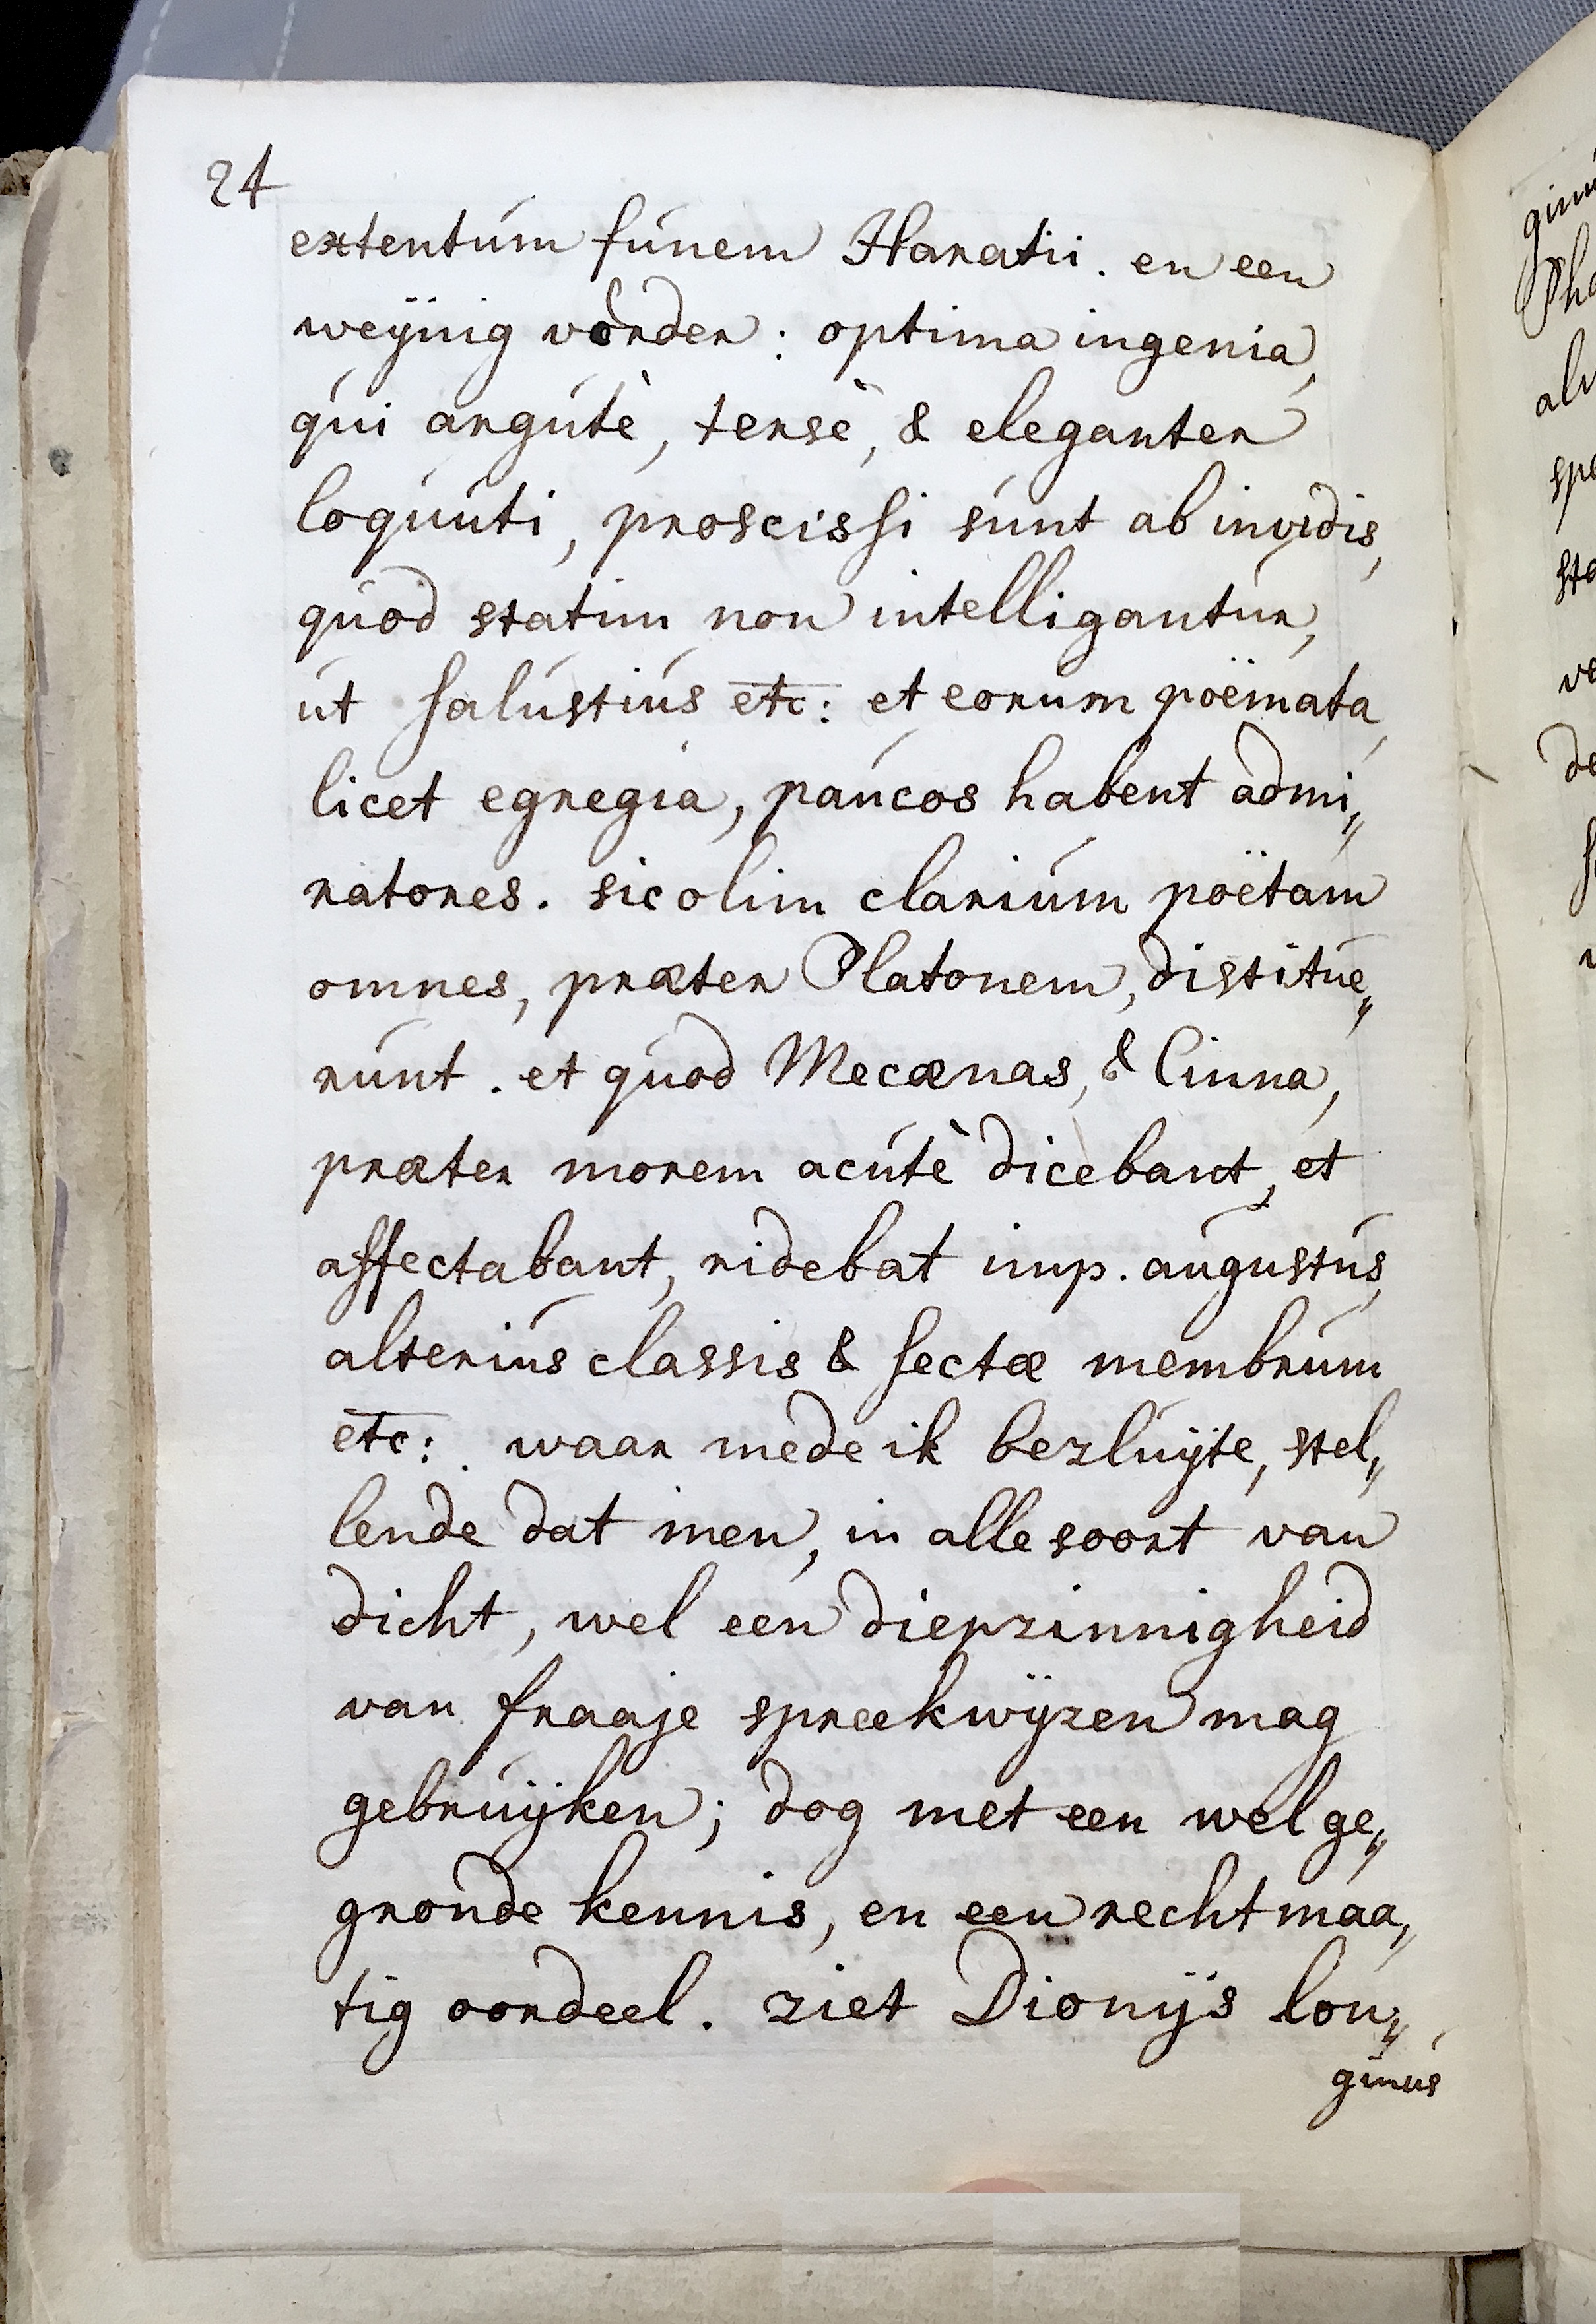 24
extentum funem Haratii. en een
weÿnig vorder: optima ingenia,
qui argutè, tersè, & eleganter
loquuti, proscissi sunt ab invidis,
quod statim non intelligantur,
ut salustius etc: et eorum poëmata,
licet egregia, paucos habent admi„
ratores. sic olim clarium poëtam
omnes, præter Platonem, distitue„
runt. et quod Mecænas, & Cinna,
præter morem acutè dicebant, et
affectabant, ridebat imp. augustus,
alterius classis & sectæ membrum
etc: waar mede ik bezluÿte, stel„
lende dat men, in alle soort van
dicht, wel een diepzinnigheid
van fraaje spreekwÿzen mag
gebruÿken; dog met een wel ge„
gronde kennis, en een rechtmaa„
tig oordeel. ziet Dionÿs lon„
ginus